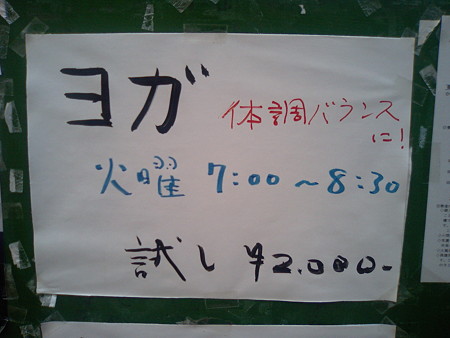 ヨガ
体調バランス
に!
火曜 7:00~8:30
試し ¥2.000-